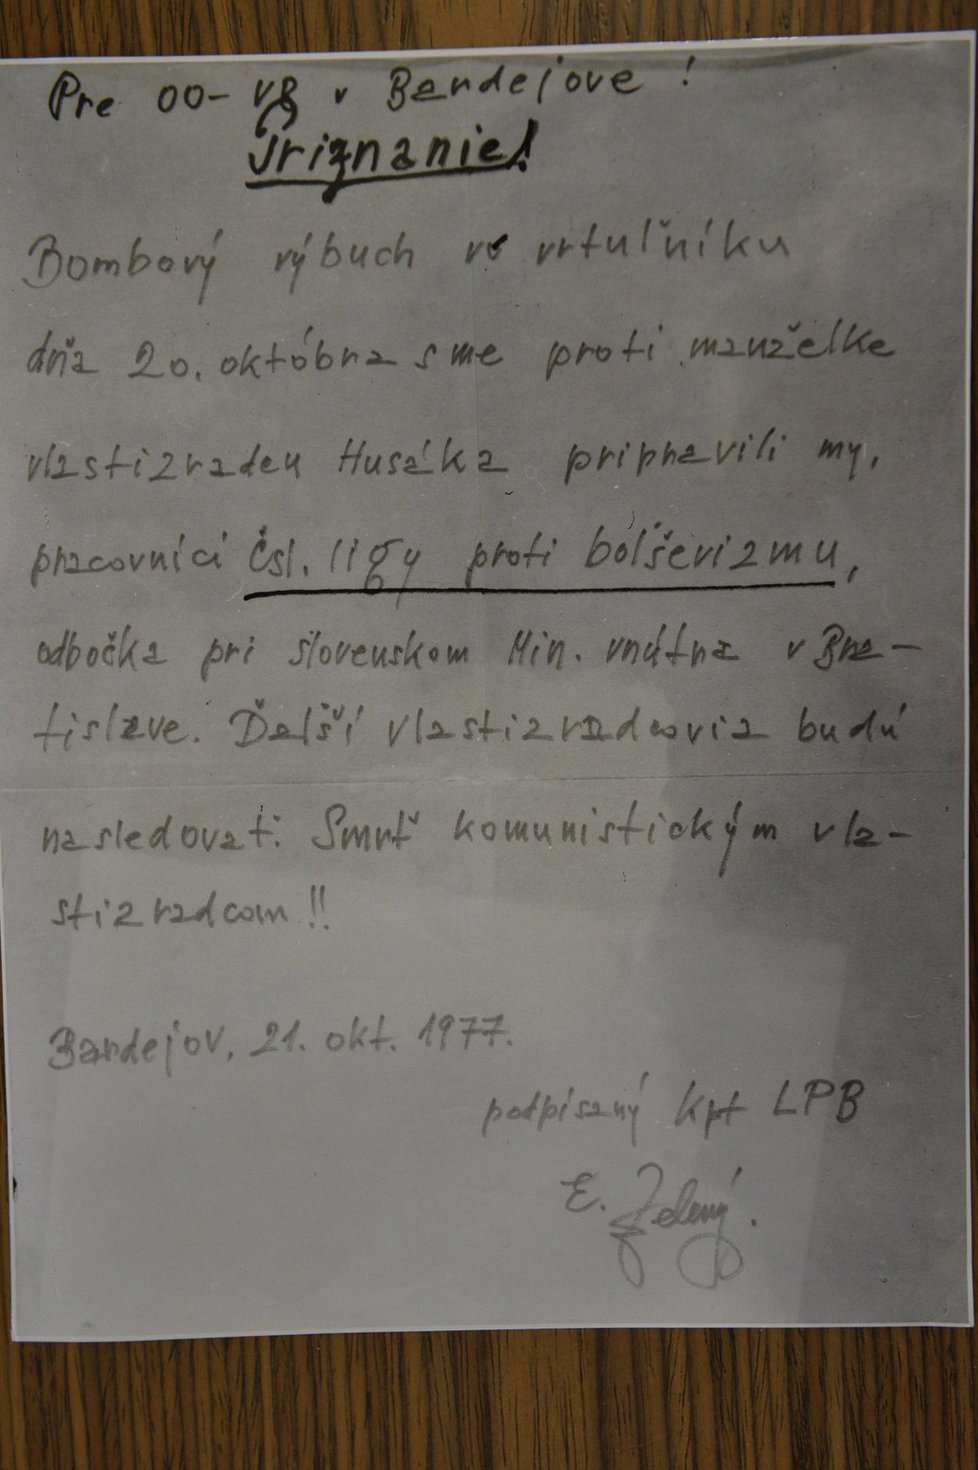 Pre OO-VB v Bardejove!
Priznanie!
Bombový výbuch vo vrtuľníku
dňa 20. októbra sme proti manželke
vlastizradcu Husáka pripravili my,
pracovníci Čsl. ligy proti bolševizmu,
odbočka pri slovenskom Min. vnútra v Bra-
tislave. Ďalší vlastizradcovia budú
nasledovať. Smrť komunistickým vla-
stizradcom!!
Bardejov, 21. okt. 1977.
podpísaný kpt LPB
E. Zelený.